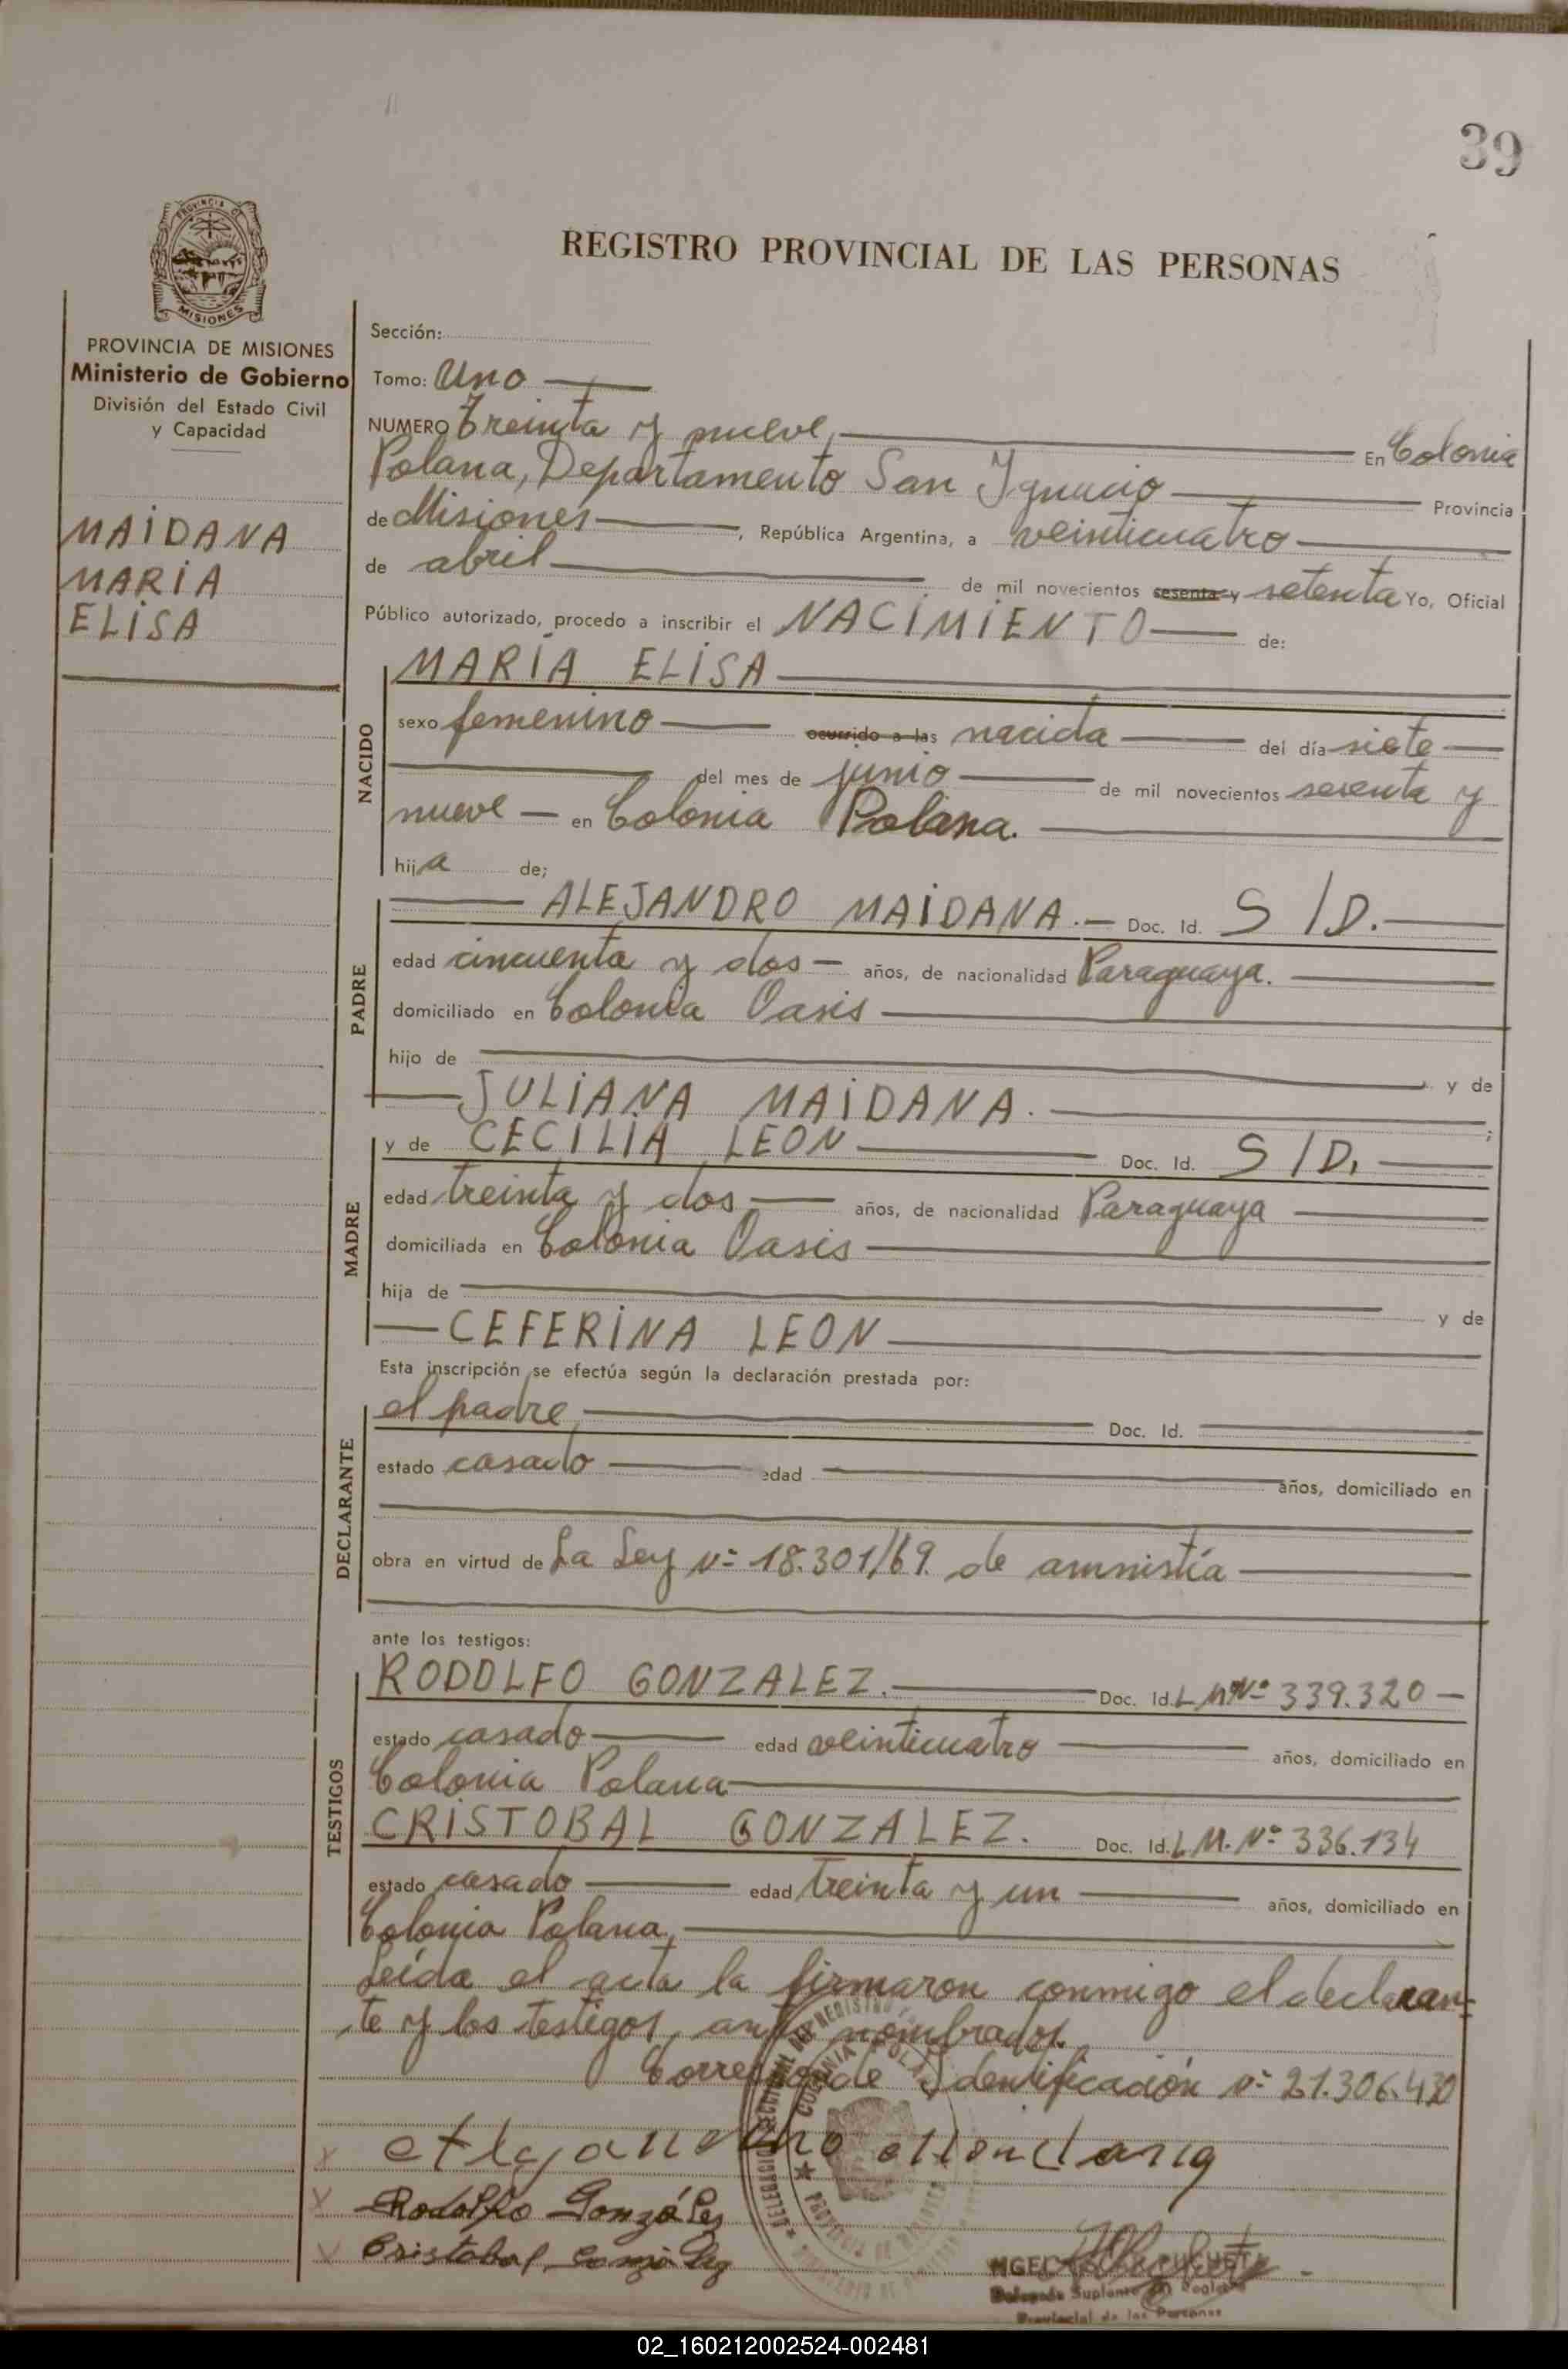 39
PROVINCIA DE
MISIONES
REGISTRO PROVINCIAL DE LAS PERSONAS
PROVINCIA DE MISIONES
Ministerio de Gobierno
División del Estado Civil
y Capacidad
MAIDANA
MARIA
ELISA
Sección:
Tomo: Uno
NUMERO Treinta y nueve, En Colonia
Polana, Departamento San Ignacio Provincia
de Misiones, República Argentina, a veinticuatro
de abril de mil novecientos sesenta y setenta Yo, Oficial
Público autorizado, procedo a inscribir el NACIMIENTO de:
NACIDO
MARIA ELISA
sexo femenino ocurrido a las nacida del día siete
del mes de junio de mil novecientos sesenta y
nueve en Colonia Polana.
hija de;
PADRE
ALEJANDRO MAIDANA. Doc. Id. S/D.
edad cincuenta y dos años, de nacionalidad Paraguaya.
domiciliado en Colonia Oasis
hijo de y de
JULIANA MAIDANA. ;
MADRE
y de CECILIA LEON Doc. Id. S/D.
edad treinta y dos años, de nacionalidad Paraguaya
domiciliada en Colonia Oasis
hija de y de
CEFERINA LEON
Esta inscripción se efectúa según la declaración prestada por:
DECLARANTE
el padre, Doc. Id.
estado casado edad años, domiciliado en
obra en virtud de La Ley Nº 18.301/69. de amnistía
ante los testigos:
TESTIGOS
RODOLFO GONZALEZ. Doc. Id. L M Nº 339.320
estado casado edad veinticuatro años, domiciliado en
Colonia Polana
CRISTOBAL GONZALEZ. Doc. Id. L M. Nº 336.134
estado casado edad treinta y un años, domiciliado en
Colonia Polana,
Leída el acta la firmaron conmigo el declaran-
te y los testigos, antes nombrados.
Corresponde Identificación Nº 21.306.430
Rodolfo González
Cristobal González
Delegado Suplente del Registro
Provincial de las Personas
02_160212002524-002481